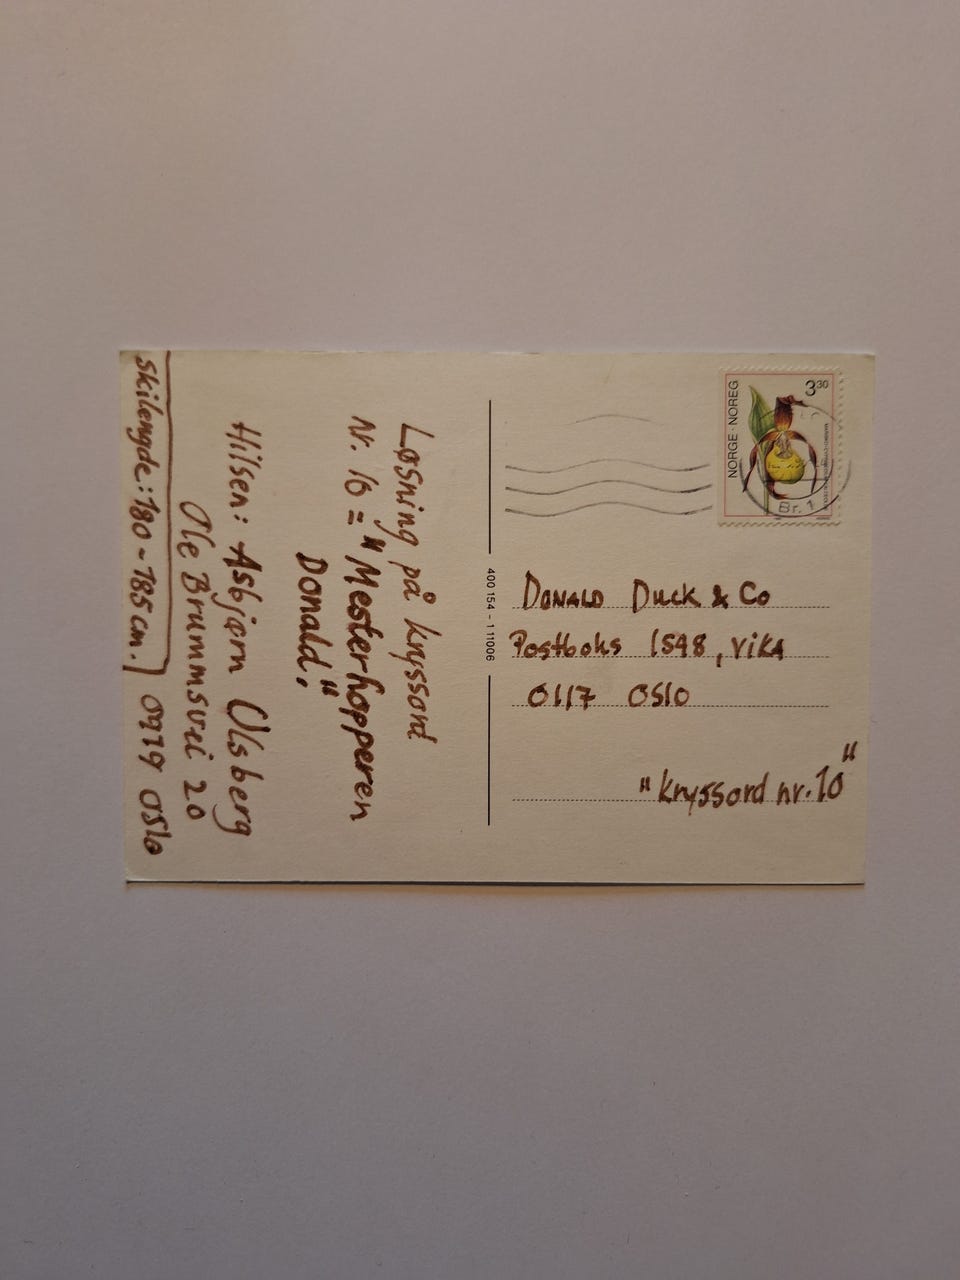 Løsning på kryssord
Nr. 16 = "Mesterhopperen
Donald".
Hilsen: Asbjørn Ulsberg
Ole Brummsvei 20
0979 Oslo
skilengde: 180-185cm.
400 154 - 111006
NORGE · NOREG
3 30
Br. 1
DONALD Duck & Co
Postboks 1548, VIKA
0117 OSLO
"kryssord nr. 10"